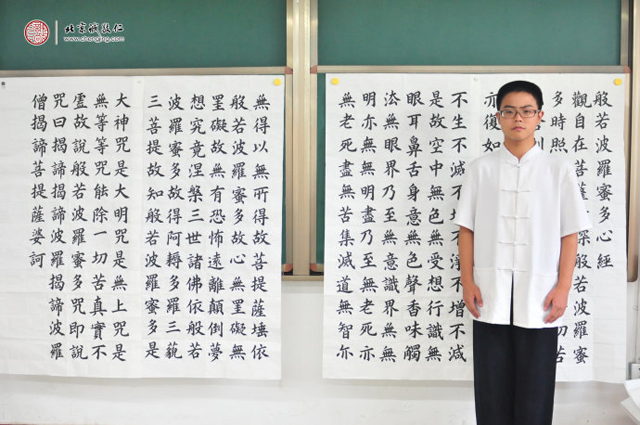 北京诚敬仁
www.chengjing.com
般若波羅蜜多心經
觀自在菩深般若波羅蜜
多時照切苦
亦復如
不生不滅不垢不淨不增不減
是故空中無色無受想行識無
眼耳鼻舌身意無色聲香味觸
法無眼界乃至無意識界無無
明亦無無明盡乃至無老死亦
無老死盡無苦集滅道無智亦
無得以無所得故菩提薩埵依
般若波羅蜜多故心無罣礙無
罣礙故無有恐怖遠離顛倒夢
想究竟涅槃三世諸佛依般若
波羅蜜多故得阿耨多羅三藐
三菩提故知般若波羅蜜多是
大神咒是大明咒是無上咒是
無等等咒能除一切苦真實不
虛故說般若波羅蜜多咒即說
咒曰揭諦揭諦波羅揭諦波羅
僧揭諦菩提薩婆訶